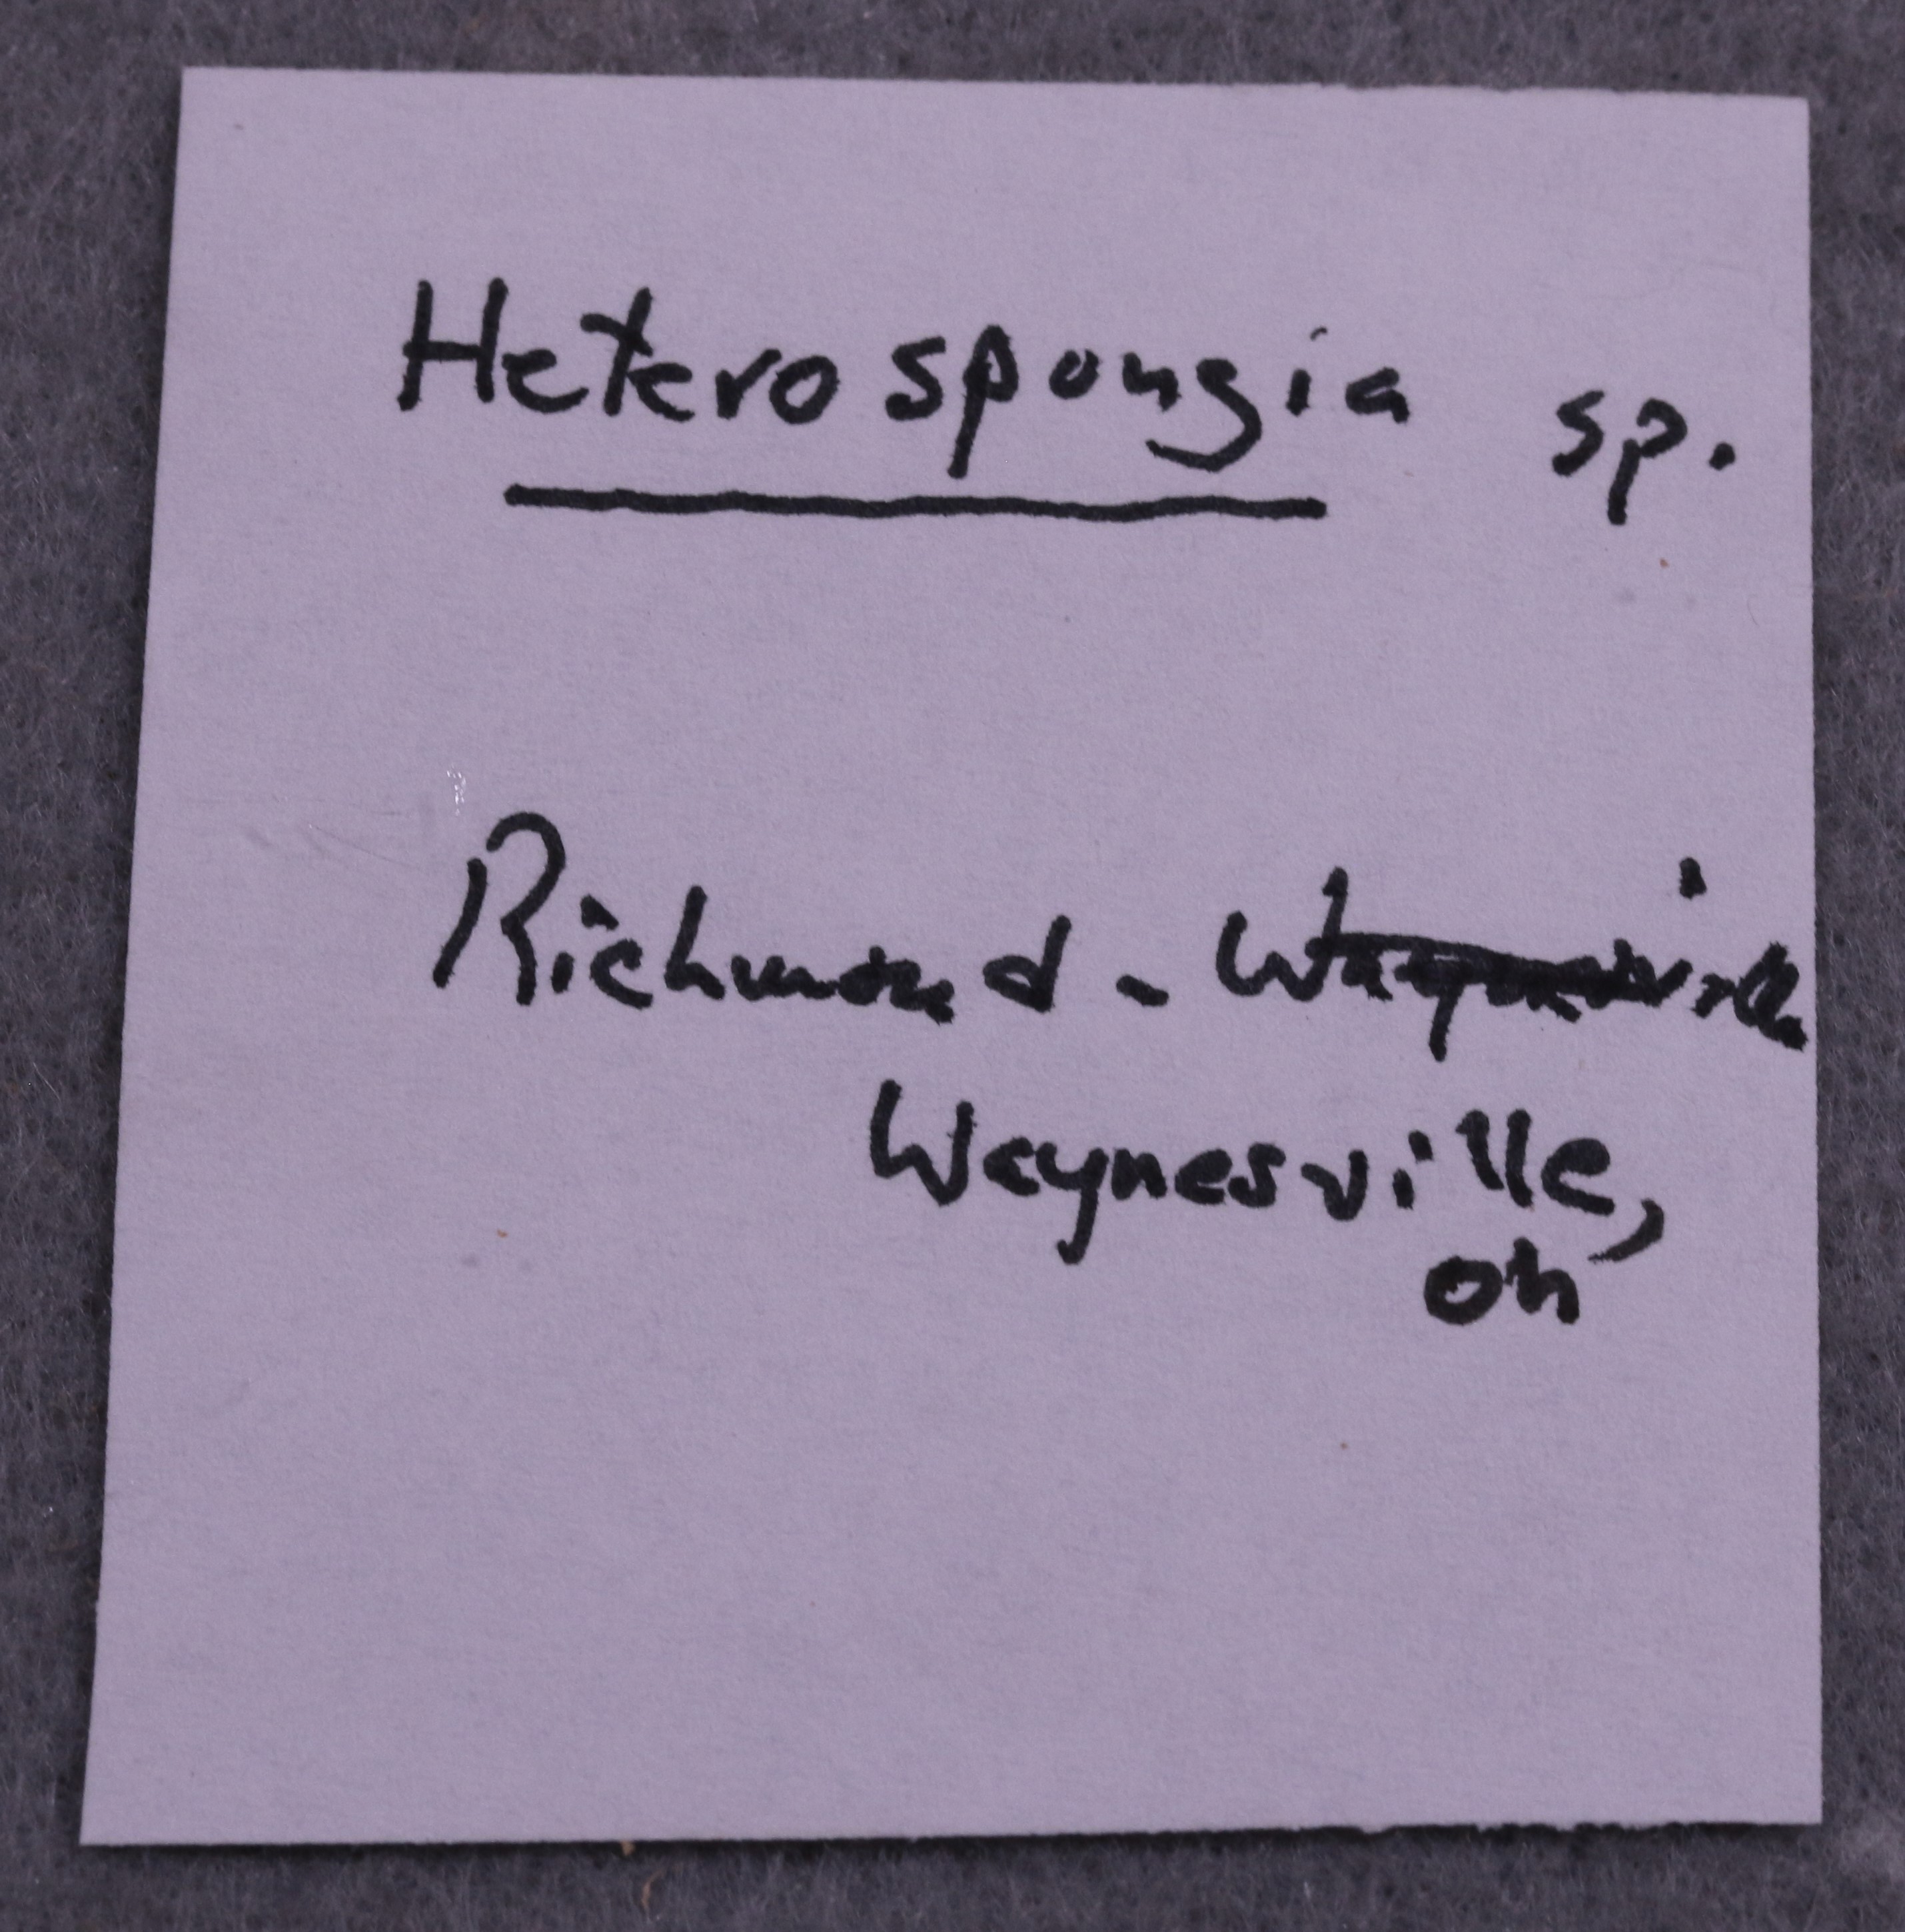 Heterospongia sp.
Richmond - Waynesville
Waynesville,
Oh